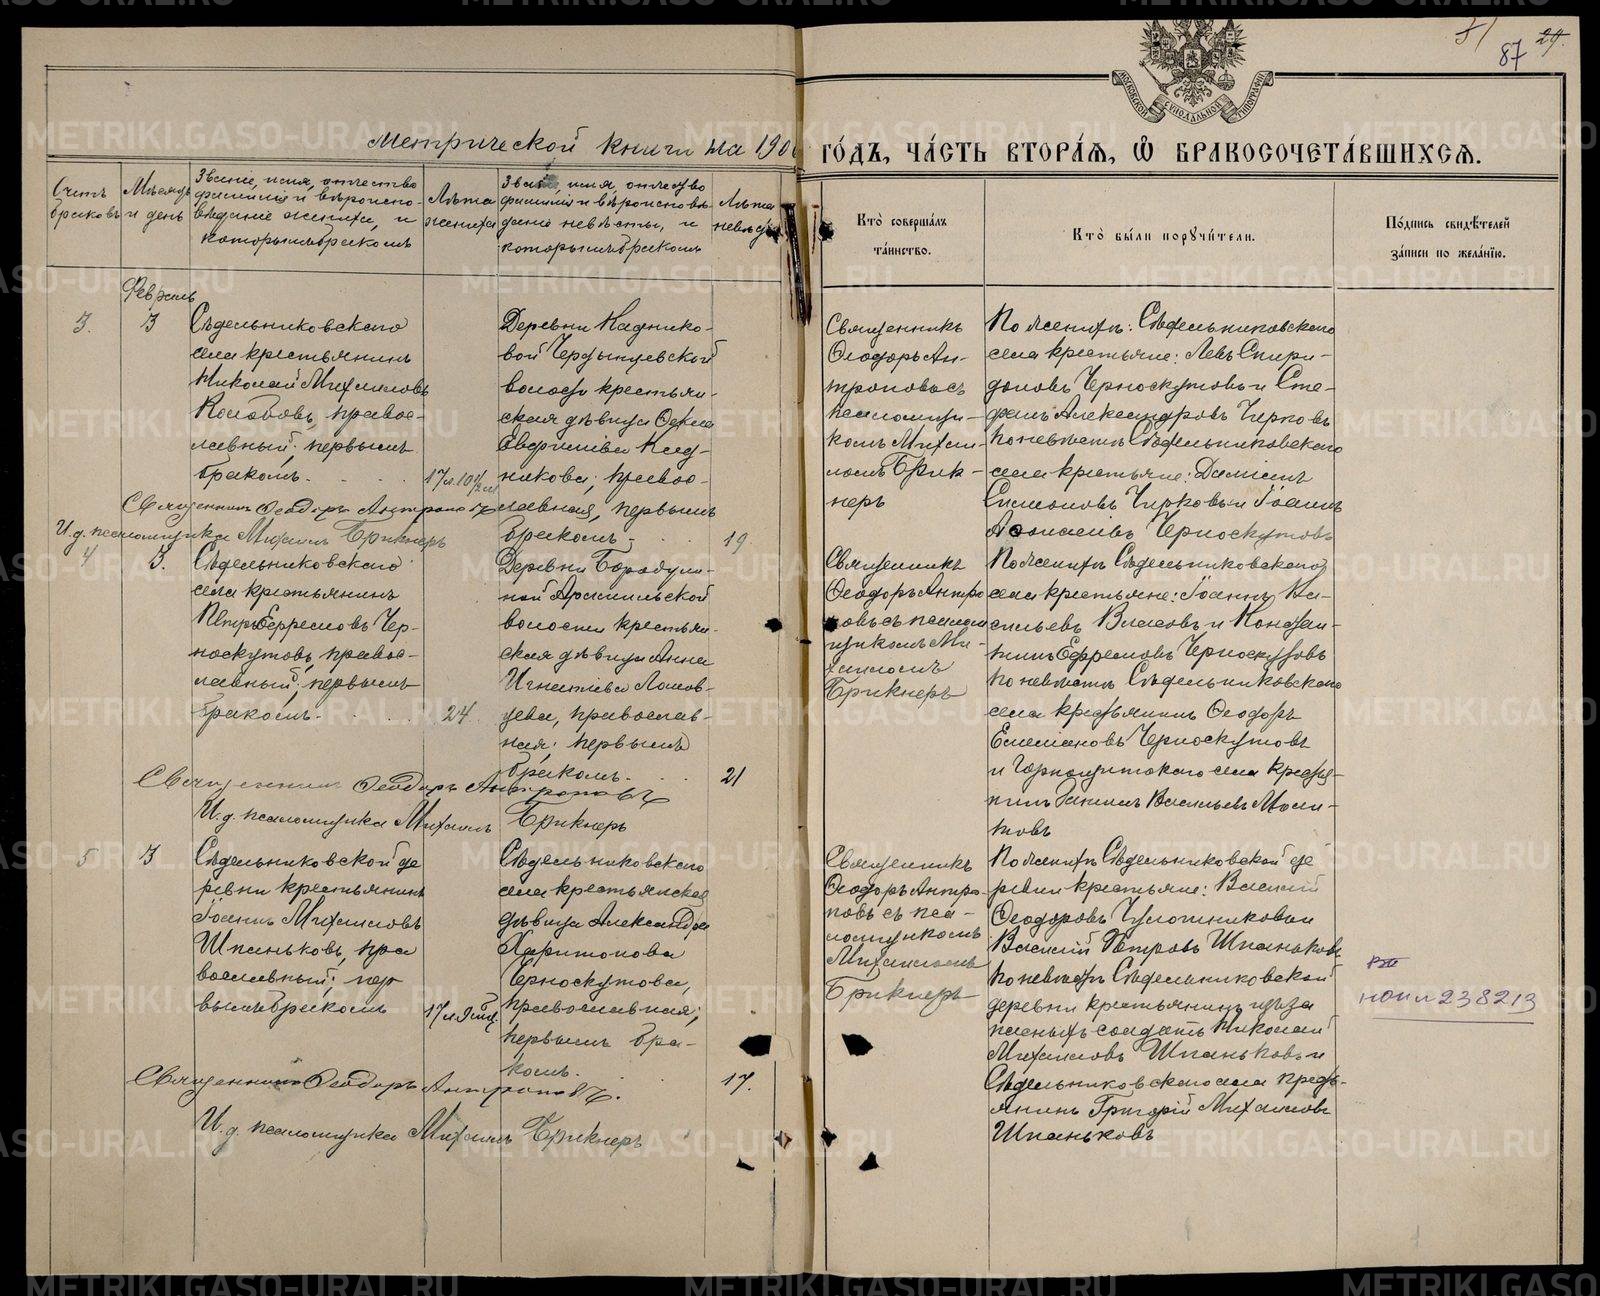 51
87
29.
МОСКОВСКОЙ СѴНОДАЛЬНОЙ ТИПОГРАФІИ
Метрической книги на 190
го́дъ, ча́сть втора́я, ѡ҆ бракосочета́вшихся.
Счетъ браковъ
Мѣсяцъ и день
Званіе, имя, отчество фамилія и вѣроиспо-вѣданіе жениха, и которымъ бракомъ
Лѣта жениха
Званіе, имя, отчество фамилія и вѣроисповѣ-даніе невѣсты, и которымъ бракомъ
Лѣта невѣсты
Кто̀ соверша́лъ та́инство.
Кто̀ бы́ли порꙋчи́тели.
По́дпись свидѣ́телей за́писи по жела́нїю.
Февраль
3.
3
Сѣдельниковскаго
села крестьянинъ
Николай Михаиловъ
Колобовъ, правос-
лавный; первымъ
бракомъ.
17 л. 10½ м.
Деревни Каднико-
вой
волости крестьян-
ская дѣвица Ѳекла
Евфиміева Кад-
никова; правос-
лавная, первымъ
бракомъ
19
Священникъ
Ѳеодоръ Ан-
троповъ съ
псаломщи-
комъ Михаи-
ломъ Брик-
неръ
По женихѣ: Сѣдельниковскаго
села крестьяне: Левъ Спири-
доновъ Черноскутовъ и Сте-
фанъ Александровъ Чирковъ
По невѣстѣ Сѣдельниковскаго
села крестьяне: Даміанъ
Симоновъ Чирковъ и Іоаннъ
Аѳонасіевъ Черноскутовъ
Священникъ Ѳеодоръ Антроповъ
И.д. псаломщика Михаилъ Брикнеръ
4
3.
Сѣдельниковскаго
села крестьянинъ
Петръ Ефремовъ Чер-
носкутовъ, правос-
лавный; первымъ
бракомъ.
24
Деревни Бородули-
ной Арамильской
волости крестьян-
ская дѣвица Анна
Игнатіева Ломов-
цева, православ-
ная; первымъ
бракомъ.
21
Священникъ
Ѳеодоръ Антро
повъ съ псалом
щикомъ Ми-
хаиломъ
Брикнеръ
По женихѣ Сѣдельниковскаго
села крестьяне: Іоаннъ Ва-
сильевъ Власовъ и Констан-
тинъ Ефремовъ Черноскутовъ
По невѣстѣ Сѣдельниковскаго
села крестьянинъ Ѳеодоръ
Емельяновъ Черноскутовъ
и Горнощитскаго села крестья-
нинъ Васильевъ
Священникъ Ѳеодоръ Антроповъ
И.д. псаломщика Михаилъ Брикнеръ
5
3
Сѣдельниковской де
ревни крестьянинъ
Іоаннъ Михаиловъ
Шпаньковъ, пра
вославный; пер
вымъ бракомъ
17 л. 9 мѣс.
Сѣдельниковскаго
села крестьянская
дѣвица Александра
Харитонова
Черноскутова,
православная;
первымъ бра-
комъ.
17.
Священникъ
Ѳеодоръ Антро-
повъ съ пса-
ломщикомъ
Михаиломъ
Брикнеръ
По женихѣ Сѣдельниковской де
ревни крестьяне: Василій
Ѳеодоровъ и
Василій Петровъ Шпаньковъ
По невѣстѣ Сѣдельниковской
деревни крестьянинъ изъ за
пасныхъ солдатъ Николай
Михаиловъ Шпаньковъ и
Сѣдельниковскаго села кресть-
янинъ Григорій Михаиловъ
Шпаньковъ
238213
Священникъ Ѳеодоръ Антроповъ.
И.д. псаломщика Михаилъ Брикнеръ
METRIKI.GASO-URAL.RU